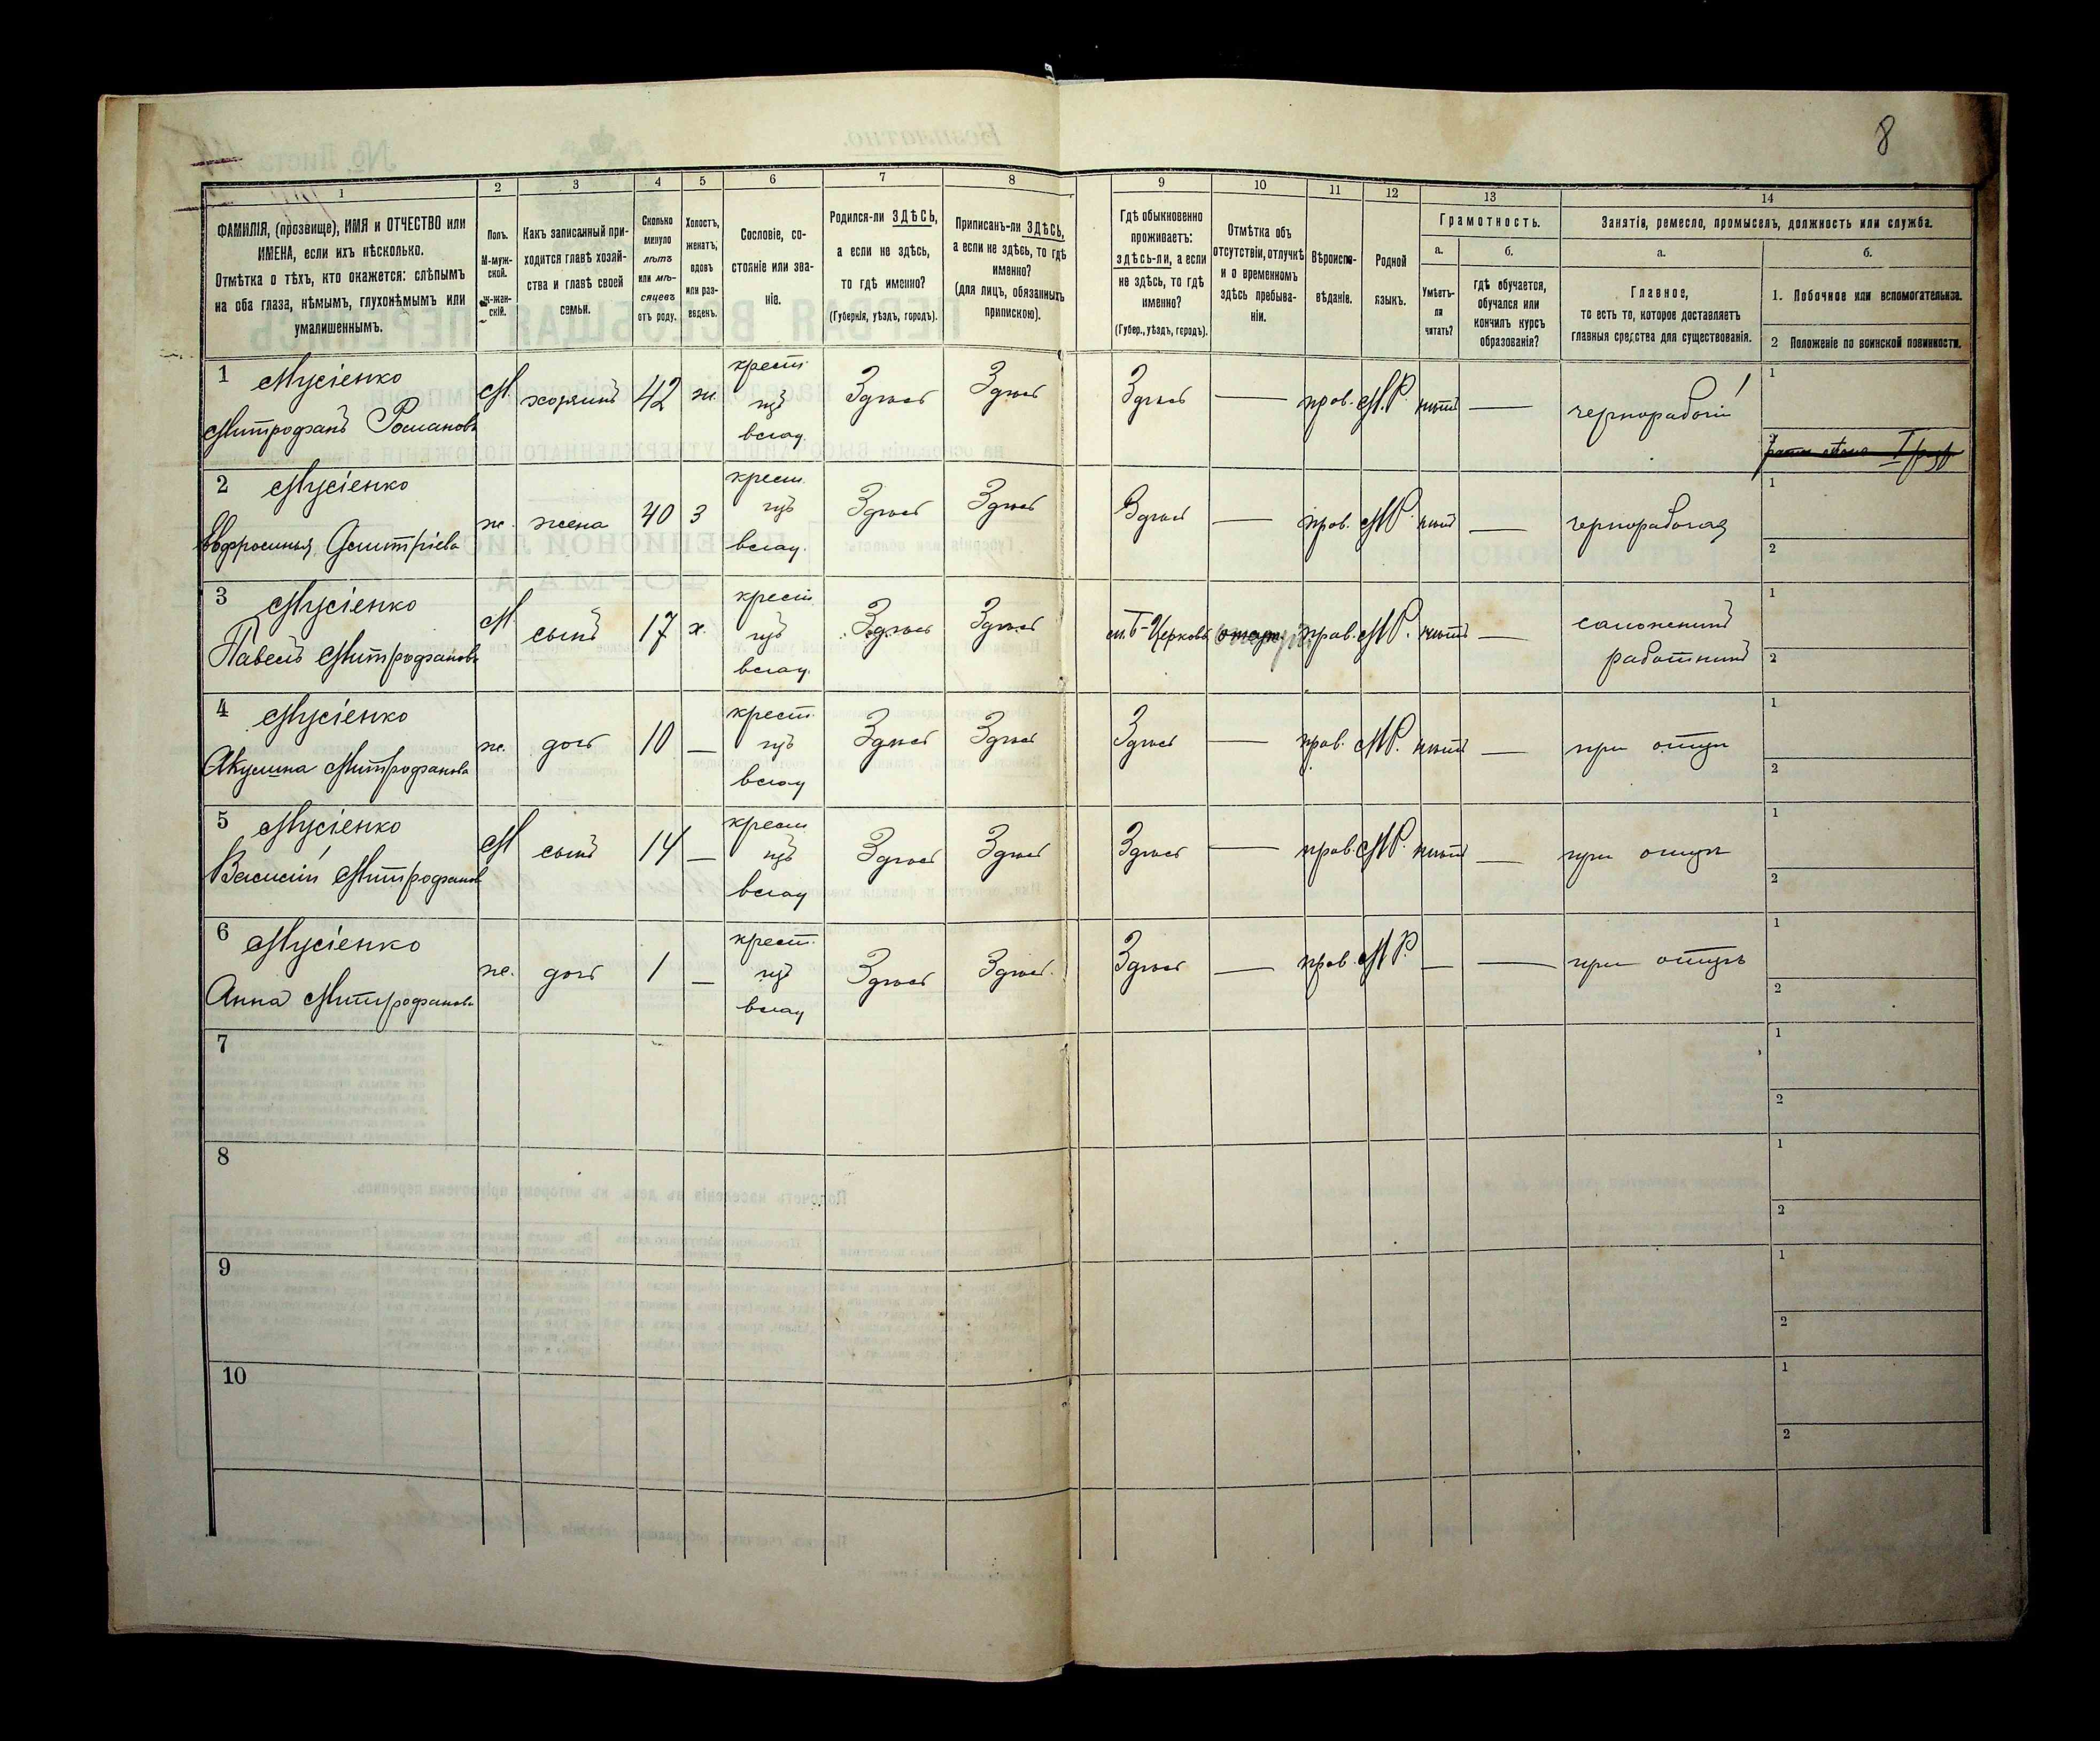 8
1 2 3 4 5 6 7 8 9 10 11 12 13 14
ФАМИЛІЯ, (прозвище), ИМЯ и ОТЧЕСТВО или
ИМЕНА, если ихъ нѣсколько.
Отмѣтка о тѣхъ, кто окажется: слѣпымъ
на оба глаза, нѣмымъ, глухонѣмымъ или
умалишеннымъ.
Полъ.
М-муж-
ской.
ж-жен-
скій.
Какъ записанный при-
ходится главѣ хозяй-
ства и главѣ своей
семьи.
Сколько
минуло
лѣтъ
или мѣ-
сяцевъ
отъ роду.
Холостъ,
женатъ,
вдовъ
или раз-
веденъ.
Сословіе, со-
стояніе или зва-
ніе.
Родился-ли ЗДѢСЬ,
а если не здѣсь,
то гдѣ именно?
(Губернія, уѣздъ, городъ).
Приписанъ-ли ЗДѢСЬ,
а если не здѣсь, то гдѣ
именно?
(для лицъ, обязанныхъ
припискою).
Гдѣ обыкновенно
проживаетъ:
здѣсь-ли, а если
не здѣсь, то гдѣ
именно?
(Губер., уѣздъ, городъ).
Отмѣтка объ
отсутствіи, отлучкѣ
и о временномъ
здѣсь пребыва-
ніи.
Вѣроиспо-
вѣданіе.
Родной
языкъ.
Грамотность.
а.
Умѣетъ-
ли
читать?
б.
гдѣ обучается,
обучался или
кончилъ курсъ
образованія?
Занятія, ремесло, промыселъ, должность или служба.
а.
Главное,
то есть то, которое доставляетъ
главныя средства для существованія.
б.
1. Побочное или вспомогательное.
2 Положеніе по воинской повинности.
1 Мусіенко
Митрофанъ Романовъ
М. хозяинъ 42 ж. крест. Здѣсь Здѣсь Здѣсь — прав. М.Р. нѣтъ — чернорабочій 1
2
2 Мусіенко
Евфросинья Дмитріева
ж. жена 40 з крест. Здѣсь Здѣсь Здѣсь — прав. МР. нѣтъ — чернорабочая 1
2
3 Мусіенко
Павелъ Митрофановъ
М сынъ 17 х. крест Здѣсь Здѣсь м. Б-Церковь прав. МР. нѣтъ — сапожный 1
работникъ 2
4 Мусіенко
Акулина Митрофанова
ж. дочь 10 — крест. Здѣсь Здѣсь Здѣсь — прав. МР. нѣтъ — при отцѣ 1
2
5 Мусіенко
Василій Митрофановъ
М сынъ 14 — крест Здѣсь Здѣсь Здѣсь — прав. МР. нѣтъ — при отцѣ 1
2
6 Мусіенко
Анна Митрофанова
ж. дочь 1 — крест. Здѣсь Здѣсь. Здѣсь — прав. МР. — — при отцѣ 1
2
7 1
2
8 1
2
9 1
2
10 1
2